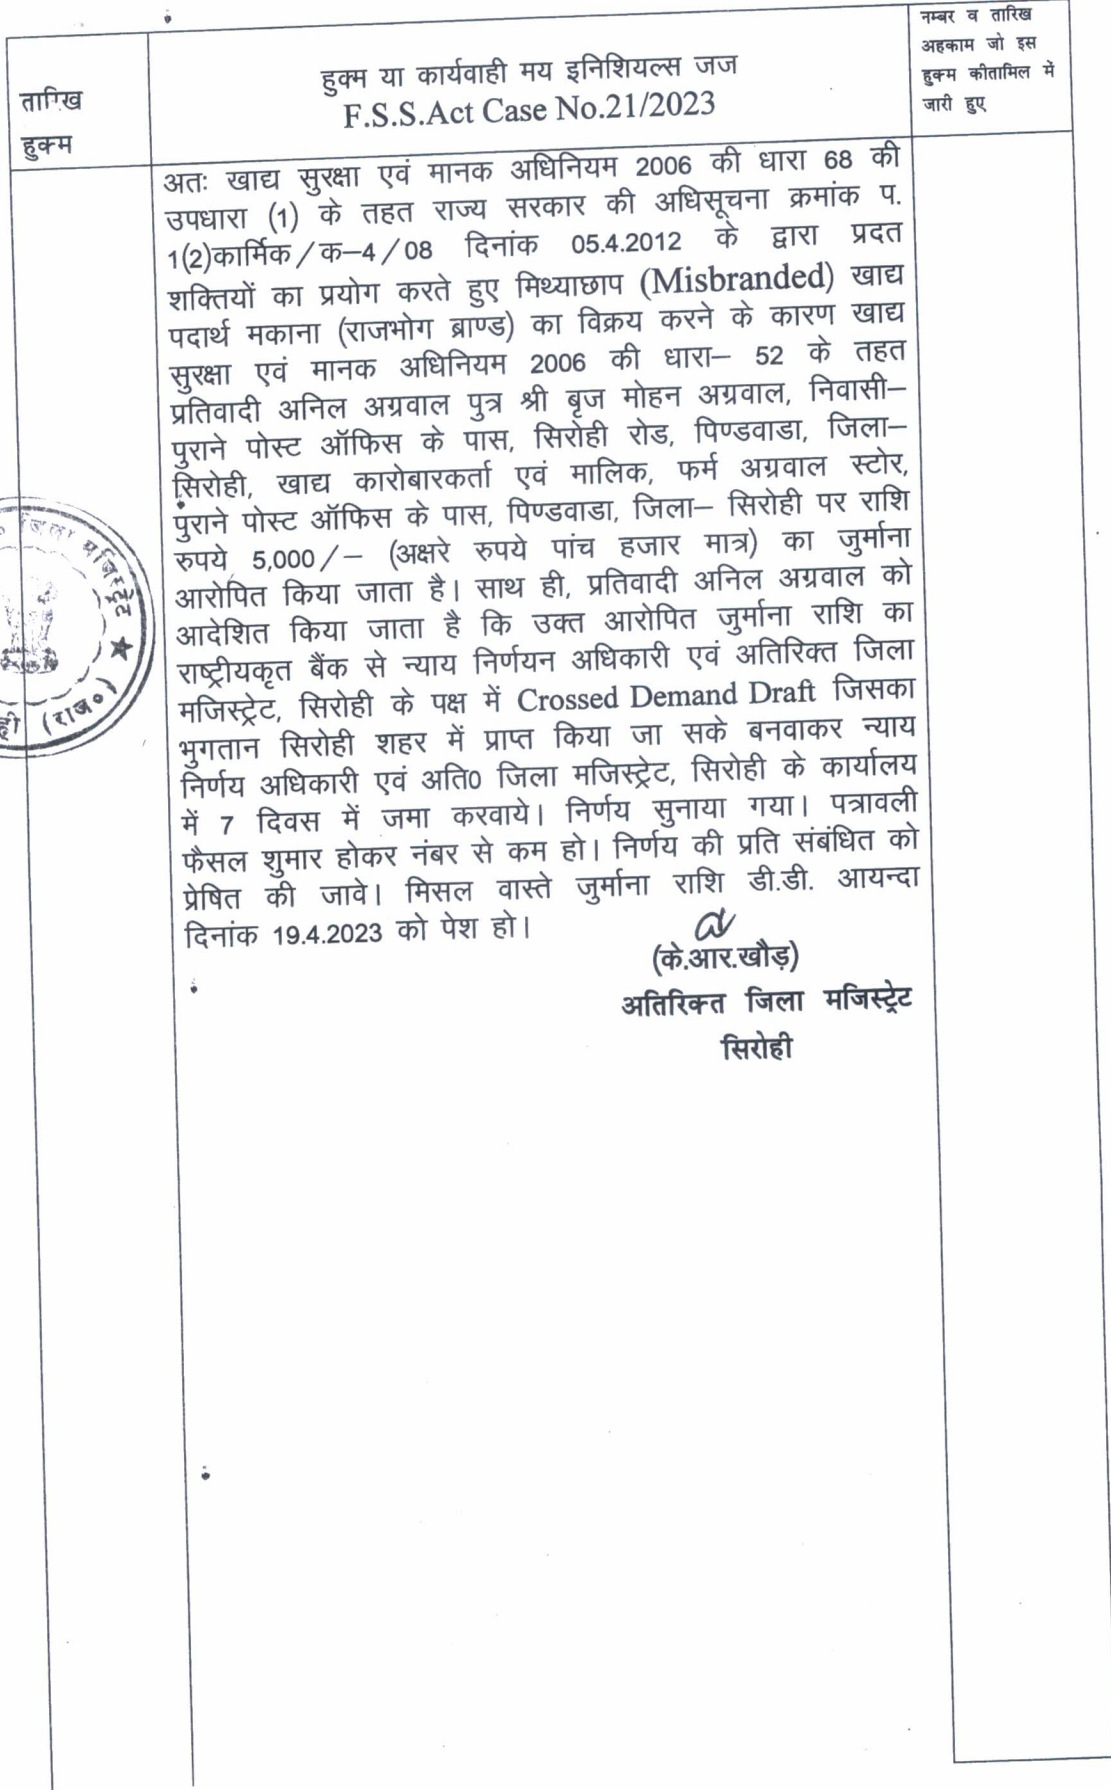 तारिख
हुक्म
हुक्म या कार्यवाही मय इनिशियल्स जज
F.S.S.Act Case No.21/2023
नम्बर व तारिख
अहकाम जो इस
हुक्म कीतामिल में
जारी हुए
अतः खाद्य सुरक्षा एवं मानक अधिनियम 2006 की धारा 68 की
उपधारा (1) के तहत राज्य सरकार की अधिसूचना क्रमांक प.
1(2)कार्मिक/क–4/08 दिनांक 05.4.2012 के द्वारा प्रदत
शक्तियों का प्रयोग करते हुए मिथ्याछाप (Misbranded) खाद्य
पदार्थ मकाना (राजभोग ब्राण्ड) का विक्रय करने के कारण खाद्य
सुरक्षा एवं मानक अधिनियम 2006 की धारा– 52 के तहत
प्रतिवादी अनिल अग्रवाल पुत्र श्री बृज मोहन अग्रवाल, निवासी–
पुराने पोस्ट ऑफिस के पास, सिरोही रोड, पिण्डवाडा, जिला–
सिरोही, खाद्य कारोबारकर्ता एवं मालिक, फर्म अग्रवाल स्टोर,
पुराने पोस्ट ऑफिस के पास, पिण्डवाडा, जिला– सिरोही पर राशि
रुपये 5,000/– (अक्षरे रुपये पांच हजार मात्र) का जुर्माना
आरोपित किया जाता है। साथ ही, प्रतिवादी अनिल अग्रवाल को
आदेशित किया जाता है कि उक्त आरोपित जुर्माना राशि का
राष्ट्रीयकृत बैंक से न्याय निर्णयन अधिकारी एवं अतिरिक्त जिला
मजिस्ट्रेट, सिरोही के पक्ष में Crossed Demand Draft जिसका
भुगतान सिरोही शहर में प्राप्त किया जा सके बनवाकर न्याय
निर्णय अधिकारी एवं अति0 जिला मजिस्ट्रेट, सिरोही के कार्यालय
में 7 दिवस में जमा करवाये। निर्णय सुनाया गया। पत्रावली
फैसल शुमार होकर नंबर से कम हो। निर्णय की प्रति संबंधित को
प्रेषित की जावे। मिसल वास्ते जुर्माना राशि डी.डी. आयन्दा
दिनांक 19.4.2023 को पेश हो।
(के.आर.खौड़)
अतिरिक्त जिला मजिस्ट्रेट
सिरोही
जिला मजिस्ट्रेट ★
(राज०)